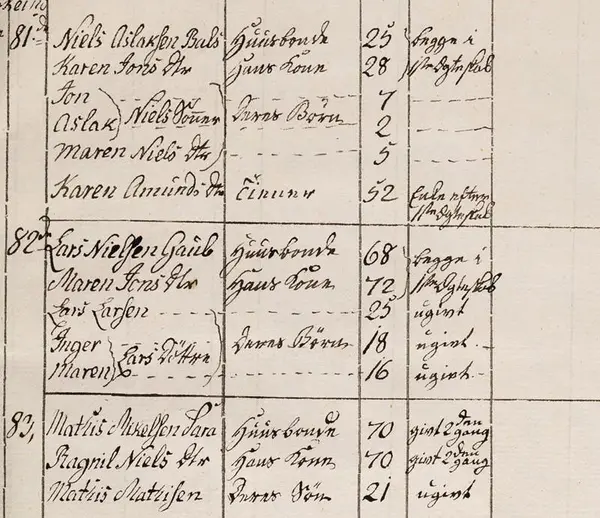 81de Niels Aslaksen Bals Huusbonde 25 begge i
Karen Jons Dtr Hans Kone 28 1ste Ægteskab
Jon 7
Aslak Niels Sönner Deres Börn 2
Maren Niels Dtr 5
Karen Amunds Dtr Tiener 52 Enke efter
1ste Ægteskab
82de Lars Nielsen Gaub Huusbonde 68 begge i
Maren Jons Dtr Hans Kone 72 1ste Ægteskab
Lars Larsen 25 ugivt
Inger Lars Döttre Deres Börn 18 ugivt
Maren 16 ugivt
83, Mathis Mikelsen Sara Huusbonde 70 givt 2den gang
Ragnil Niels Dtr Hans Kone 70 givt 2den gang
Mathis Mathisen Deres Sön 21 ugivt